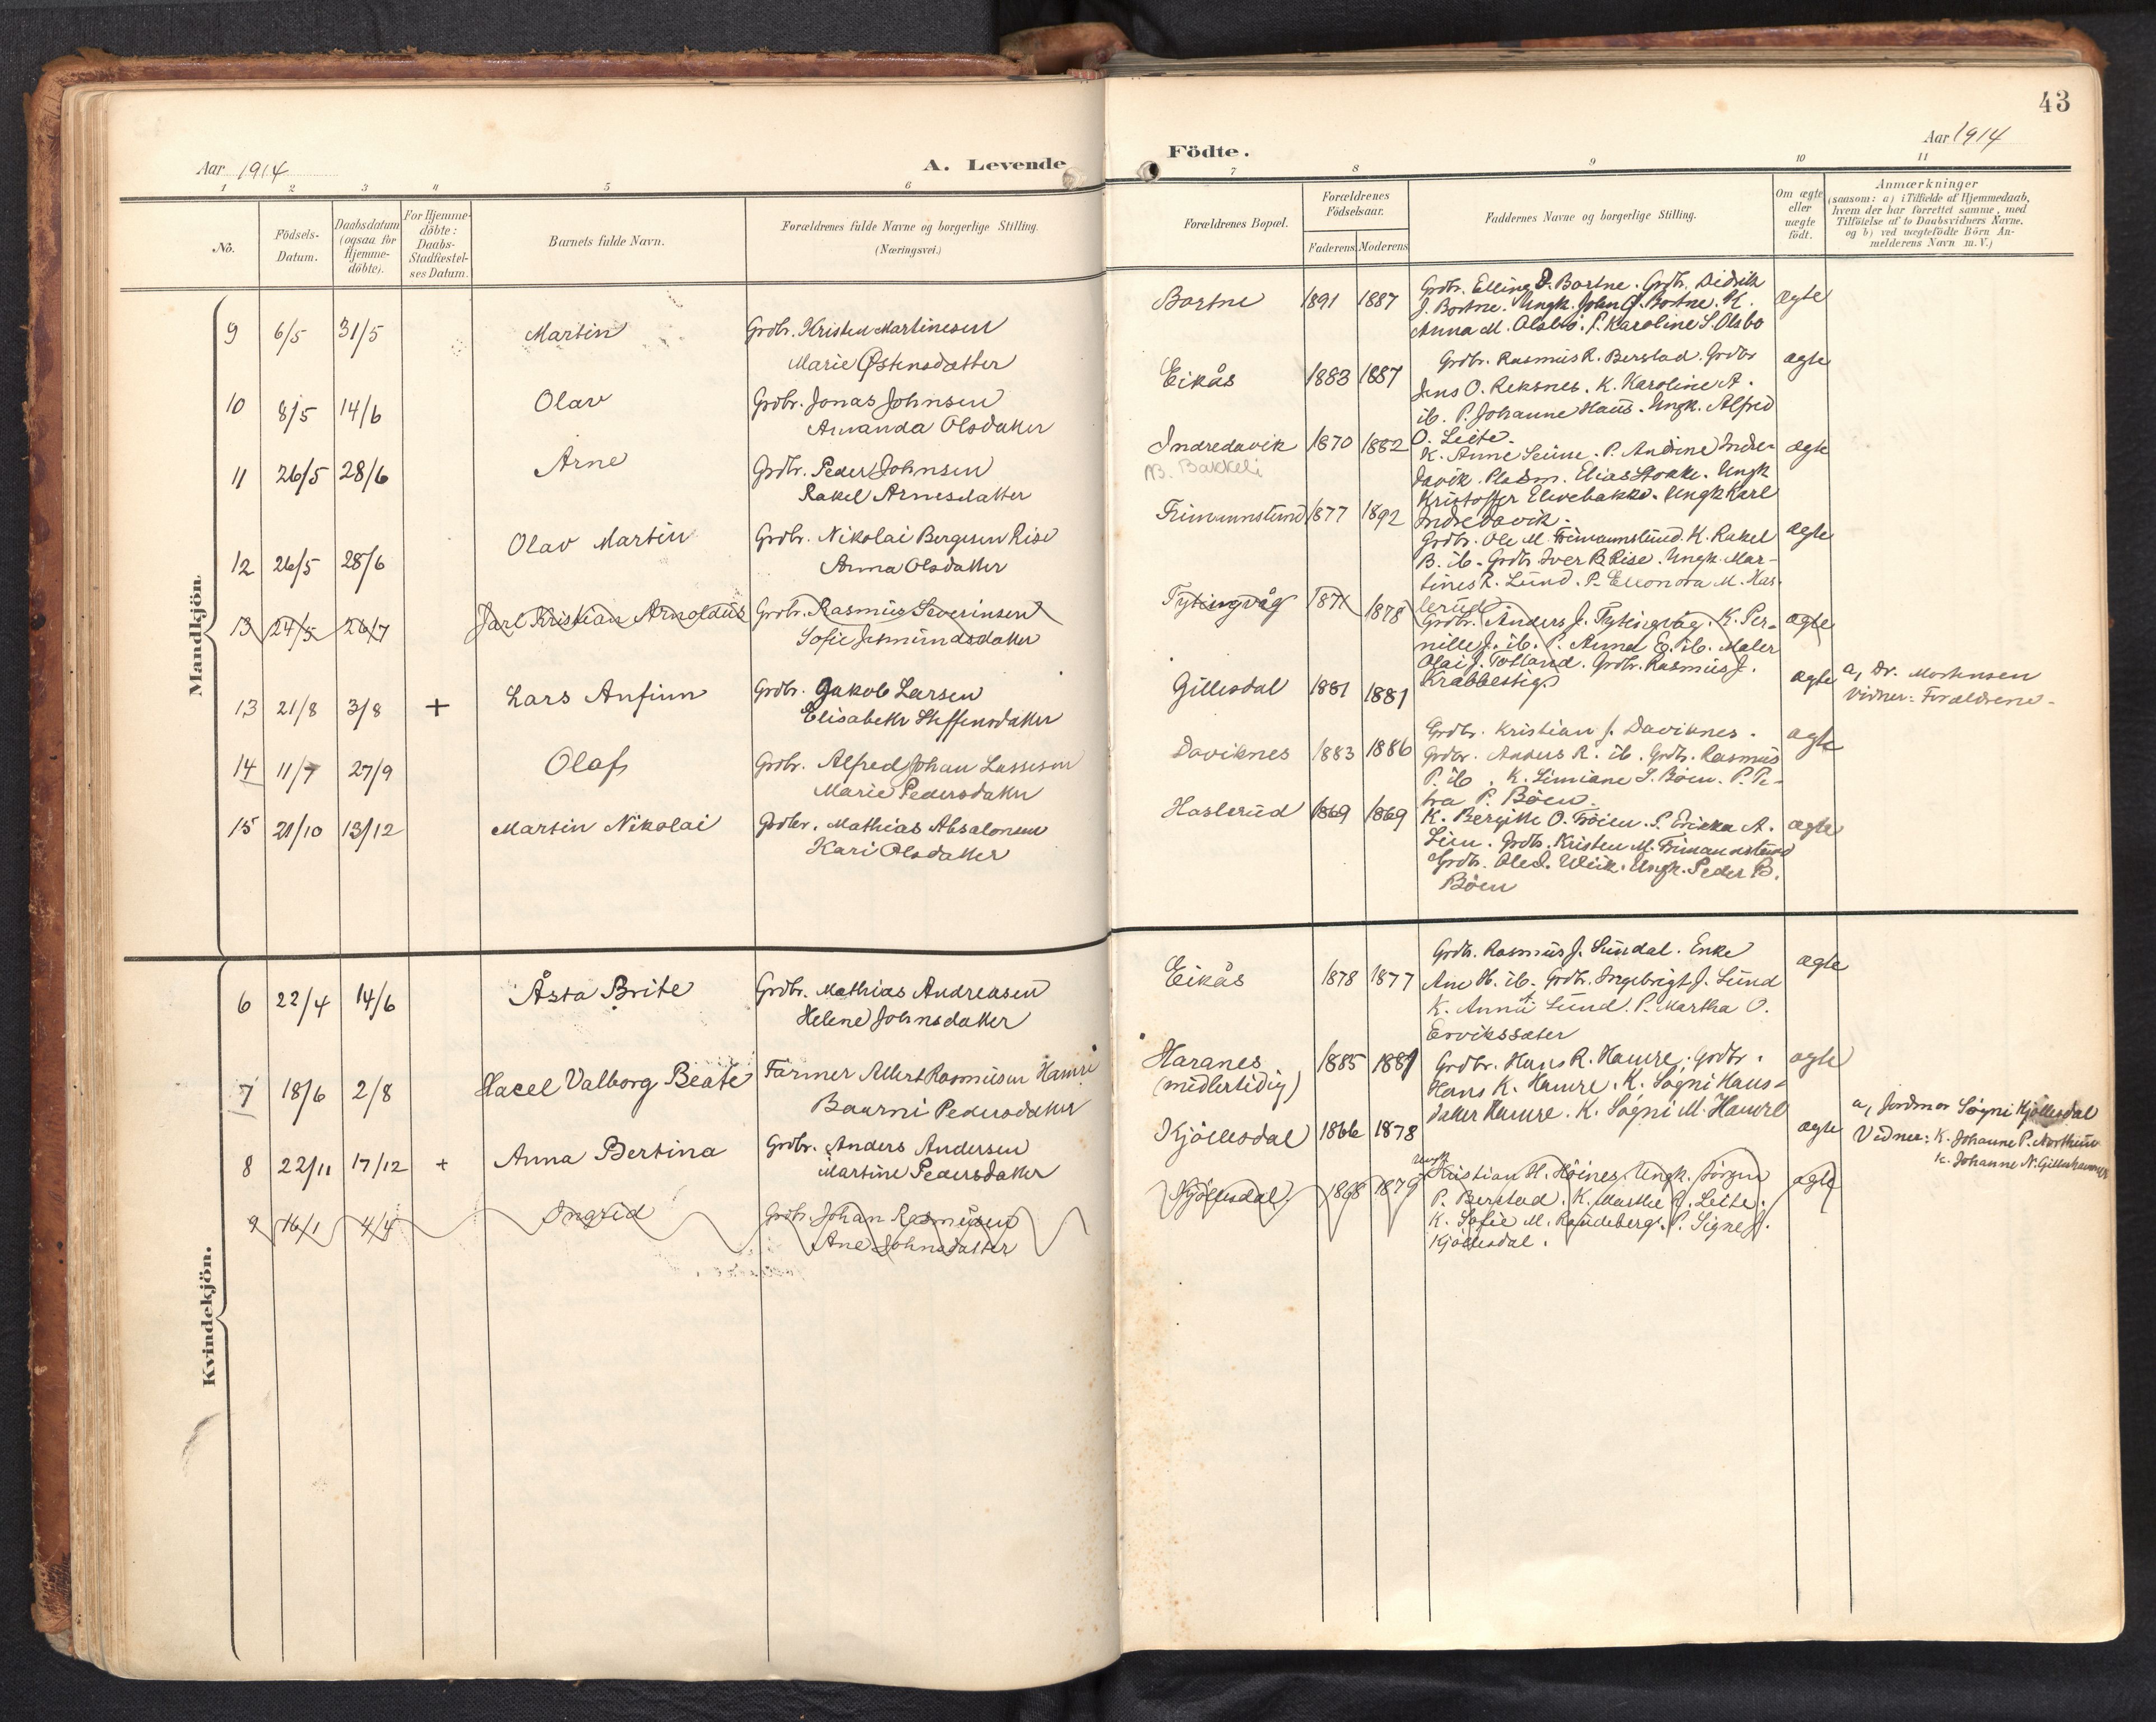 43
Aar 1914
A. Levende
Födte.
Aar 1914
1 2 3 4 5 6 7 8 9 10 11
No.
Födsels-Datum.
Daabsdatum (ogsaa for Hjemme-döbte).
For Hjemme-döbte: Daabs-Stadfæstel-ses Datum.
Barnets fulde Navn.
Forældrenes fulde Navne og borgerlige Stilling. (Næringsvei.)
Forældrenes Bopæl.
Forældrenes Födselsaar.
Faderens Moderens
Faddernes Navne og borgerlige Stilling.
Om ægte eller uægte födt.
Anmærkninger (saasom: a) i Tilfælde af Hjemmedaab, hvem der har forrettet samme, med Tilföielse af to Daabsvidners Navne, og b) ved uægtefödte Börn An-melderens Navn m. V.)
Mandkjön.
9 6/5 31/5 Martin Grdbr. Kristen Martinesen
Marie Østensdatter
Bortne 1891 1887 Grdbr. Elling D. Bortne. Grdbr. Didrik
J. Bortne. Ungk. John J. Bortne. K.
Anna M. Olsbö. P. Karoline S. Olsbö
ægte
10 8/5 14/6 Olav Grdbr. Jonas Johnsen
Amanda Olsdatter
Eikås 1883 1887 Grdbr. Rasmus R. Berstad. Grdbr
Jens O. Reksnes. K. Karoline A.
ib. P. Johanne Haus. Ungk. Alfred
O. Leite.
ægte
11 26/5 28/6 Arne Grdbr. Peder Johnsen
Rakel Arnesdatter
Indredavik 1870 1882
N3. Bakkeli
K. Anne Seime. P. Andine Indre-
davik. Pladsm. Elias Stokke. Ungk
Kristoffer Elvebakke. Ungk Karl
Indredavik.
ægte
12 26/5 28/6 Olav Martin Grdbr. Nikolai Bergesen Rise
Anna Olsdatter
Frimannslund 1877 1892
Grdbr. Ole M. Frimannslund. K. Rakel
B. ib. Grdbr Iver B Rise. Ungk. Mar-
tines R. Lund. P. Ellonora M. Has-
lerud
ægte
13 24/5 26/7 Jarl Kristian Arnoldus Grdbr. Rasmus Severinsen
Sofie Jsmundsdatter
Tytingvåg 1871 1878 Grdbr. Anders J. Tytingvåg. K. Per-
nille J. ib. P. Anna E. ib. Maler
Olai J. Totland. Grdbr. Rasmus J.
Krabbestig
ægte
13 21/8 3/8 + Lars Anfinn Grdbr. Jakob Larsen
Elisabeth Steffensdatter
Gillesdal 1881 1881
ægte a, Dr. Mortensen
Vidner: Forældrene.
14 11/7 27/9 Olaf Grdbr. Alfred Johan Lassesen
Marie Pedersdatter
Daviknes 1883 1886 Grdbr. Kristian J. Daviknes.
Grdbr. Anders R. ib. Grdbr. Rasmus
P. ib. K. Simiane S. Böen. P. Pe-
tra P. Böen.
ægte
15 21/10 13/12 Martin Nikolai Grdbr. Mathias Absalonsen
Kari Olsdatter
Haslerud 1869 1869 K. Bergitte O. Tröien. P. Erikka A.
Lien. Grdbr. Kristen M. Frimannslund
Grdbr. Ole J. Weik. Ungk. Peder B.
Böen
ægte
Kvindekjön.
6 22/4 14/6 Åsta Brite Grdbr. Mathias Andreasen
Helene Johnsdatter
Eikås 1878 1877 Grdbr. Rasmus J. Sundal. Enke
Ane M. ib. Grdbr. Ingebrigt J. Lund
K. Anna A Lund. P. Martha O.
Ervikssæter
ægte
7 18/6 2/8 Hacel Valborg Beate Farmer Albert Rasmusen Hamre
Baarni Pedersdatter
Haranes 1885 1889
(midlertidig)
Grdbr. Hans R. Hamre. Grdbr.
Hans K. Hamre. K. Sögni Hans-
datter Hamre. K. Sögni M. Hamre
ægte
8 22/11 17/12 + Anna Bertina Grdbr. Anders Andersen
Martine Pedersdatter
Kjöllesdal 1866 1878
ægte a, Jordmor Sögni Kjöllesdal
Vidner: K. Johanne P. Northun
K. Johanne N. Gilleshammer
9 16/1 4/4 Ingrid Grdbr. Johan Rasmusen
Ane Johnsdatter
Kjöllesdal 1868 1879 Ungk. Kristian H. Höines. Ungk. Jörgen
P. Berstad. K. Marthe J. Leite.
K. Sofie M. Raudeberg. P. Signe J.
Kjöllesdal.
ægte